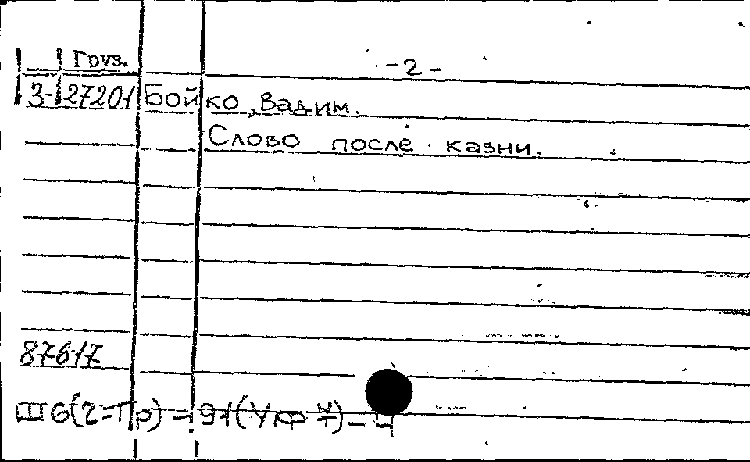 Груз. -2-
3-27201 Бойко, Вадим.
Слово после казни.
87617
Ш6(2=Гр)=91(Укр У)-4